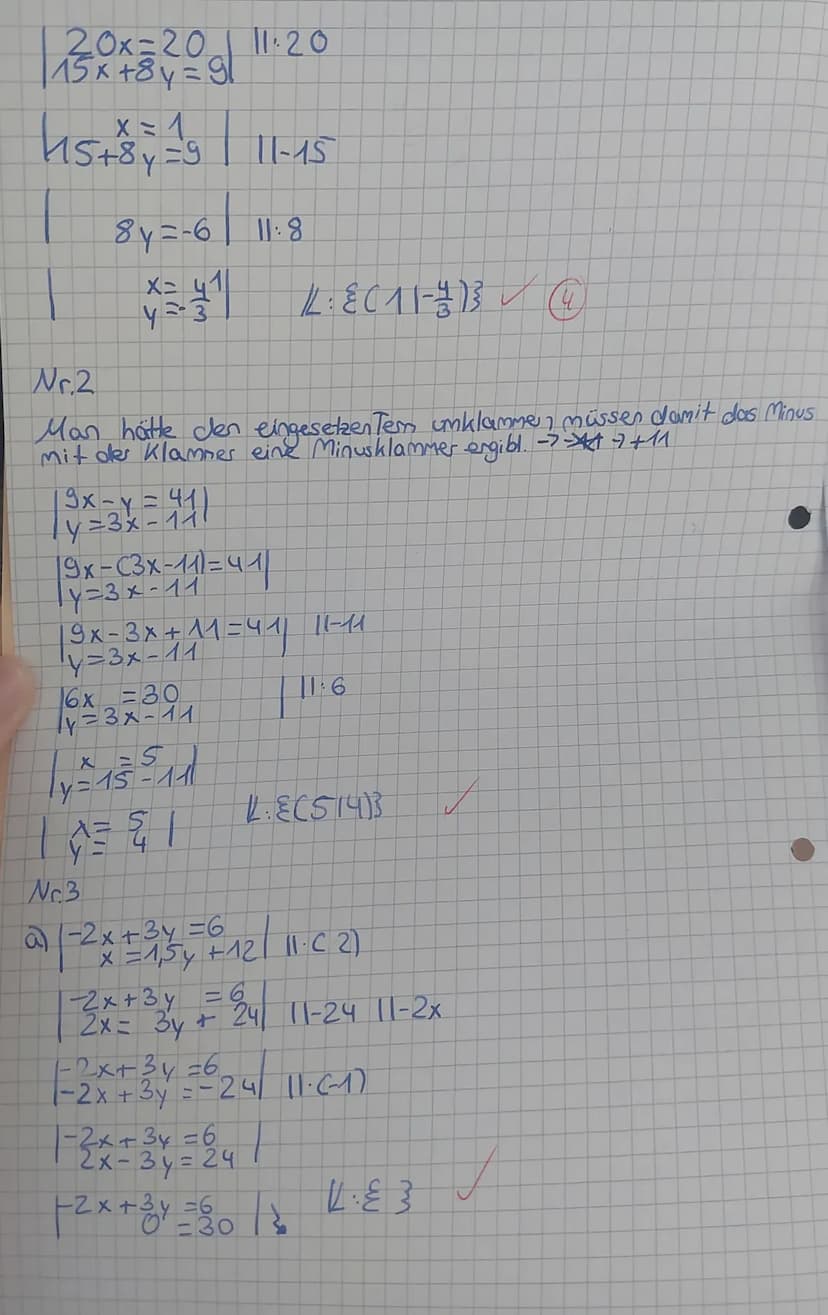 | 20x=20 | II:20
| 15x+8y=9 |
| x=1
| 15+8y=9 | II-15
| 8y=-6 | II:8
| x= 1 |
| y=-4/3 | L:{(1|-4/3)} ✓ 4
Nr.2
Man hätte den eingesetzen Term umklammern müssen damit das Minus
mit der Klammer eine Minusklammer ergibt. → → +11
| 9x-y=41 |
| y=3x-11 |
| 9x-(3x-11)=41 |
| y=3x-11
| 9x-3x+11=41 | II-11
| y=3x-11
| 6x =30 | II:6
| y=3x-11
| x =5
| y=15-11 |
| x= 5 | L:{(5|4)} ✓
| y= 4 |
Nr.3
a) | -2x+3y=6 |
| x=1,5y+12 | II·(2)
| -2x+3y =6
| 2x= 3y+ 24 | II-24 II-2x
| -2x+3y=6
| -2x+3y=-24 | II·(-1)
| -2x+3y=6 |
| 2x-3y=24 |
| -2x+3y=6 | L:{ } ✓
| 0 =30 |